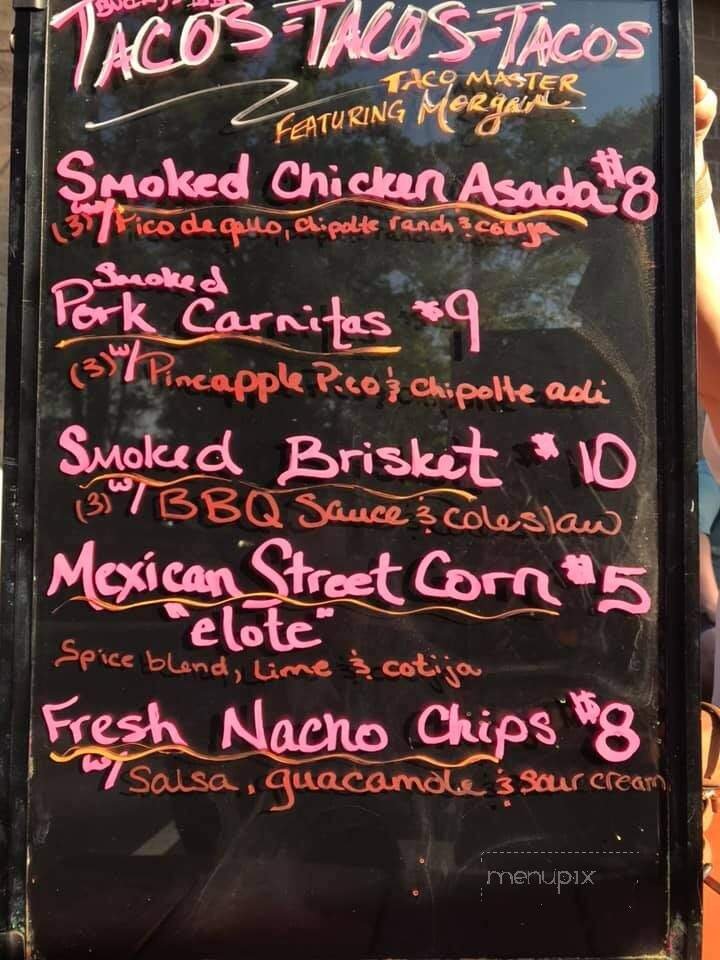 TACOS-TACOS-TACOS
TACO MASTER
FEATURING Morgan
Smoked Chicken Asada $8
(3) w/ Pico de gallo, chipolte ranch & cotija
Smoked
Pork Carnitas $9
(3) w/ Pineapple Pico & chipolte aoli
Smoked Brisket $10
(3) w/ BBQ Sauce & coleslaw
Mexican Street Corn $5
"elote"
Spice blend, Lime & cotija
Fresh Nacho Chips $8
w/ Salsa, guacamole & sour cream
menupix